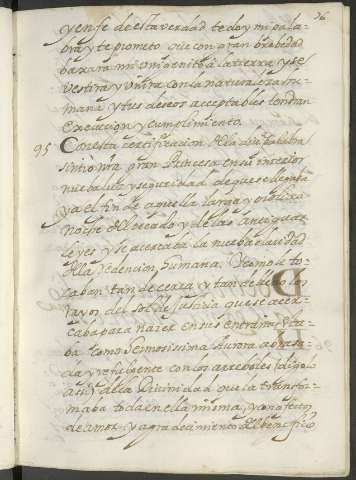 76
y en fe de esta verdad te doy mi pala-
bra, y te prometo que con gran brebedad
baxara mi unigenito a la tierra y se
vestira y unira con la naturaleza hu-
mana y tus deseos acceptables tendran
execucion y cumplimiento.
95 Con esta certificacion de la divina palabra
sintio nra gran Princesa en su interior
nueba luz y seguridad de que se llegaba
ya el fin de aquella larga y prolixa
noche del pecado y de las antiguas
leyes y se acercaba la nueba claridad
de la redencion humana. Y como le to-
caban tan de cerca y tan de lleno los
rayos del sol de justicia que se acer-
caba para nazer en sus entrañas esta-
ba como hermosissima Aurora abrasa-
da y refulgente con los arreboles (digolo
asi) de la Divinidad que la transfor-
maba toda en ella misma, y con afectos
de amor y agradecimiento del beneficio